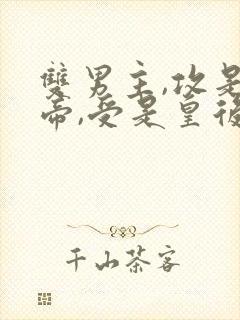 雙男主,攻是
帝,受是皇後
千山茶客